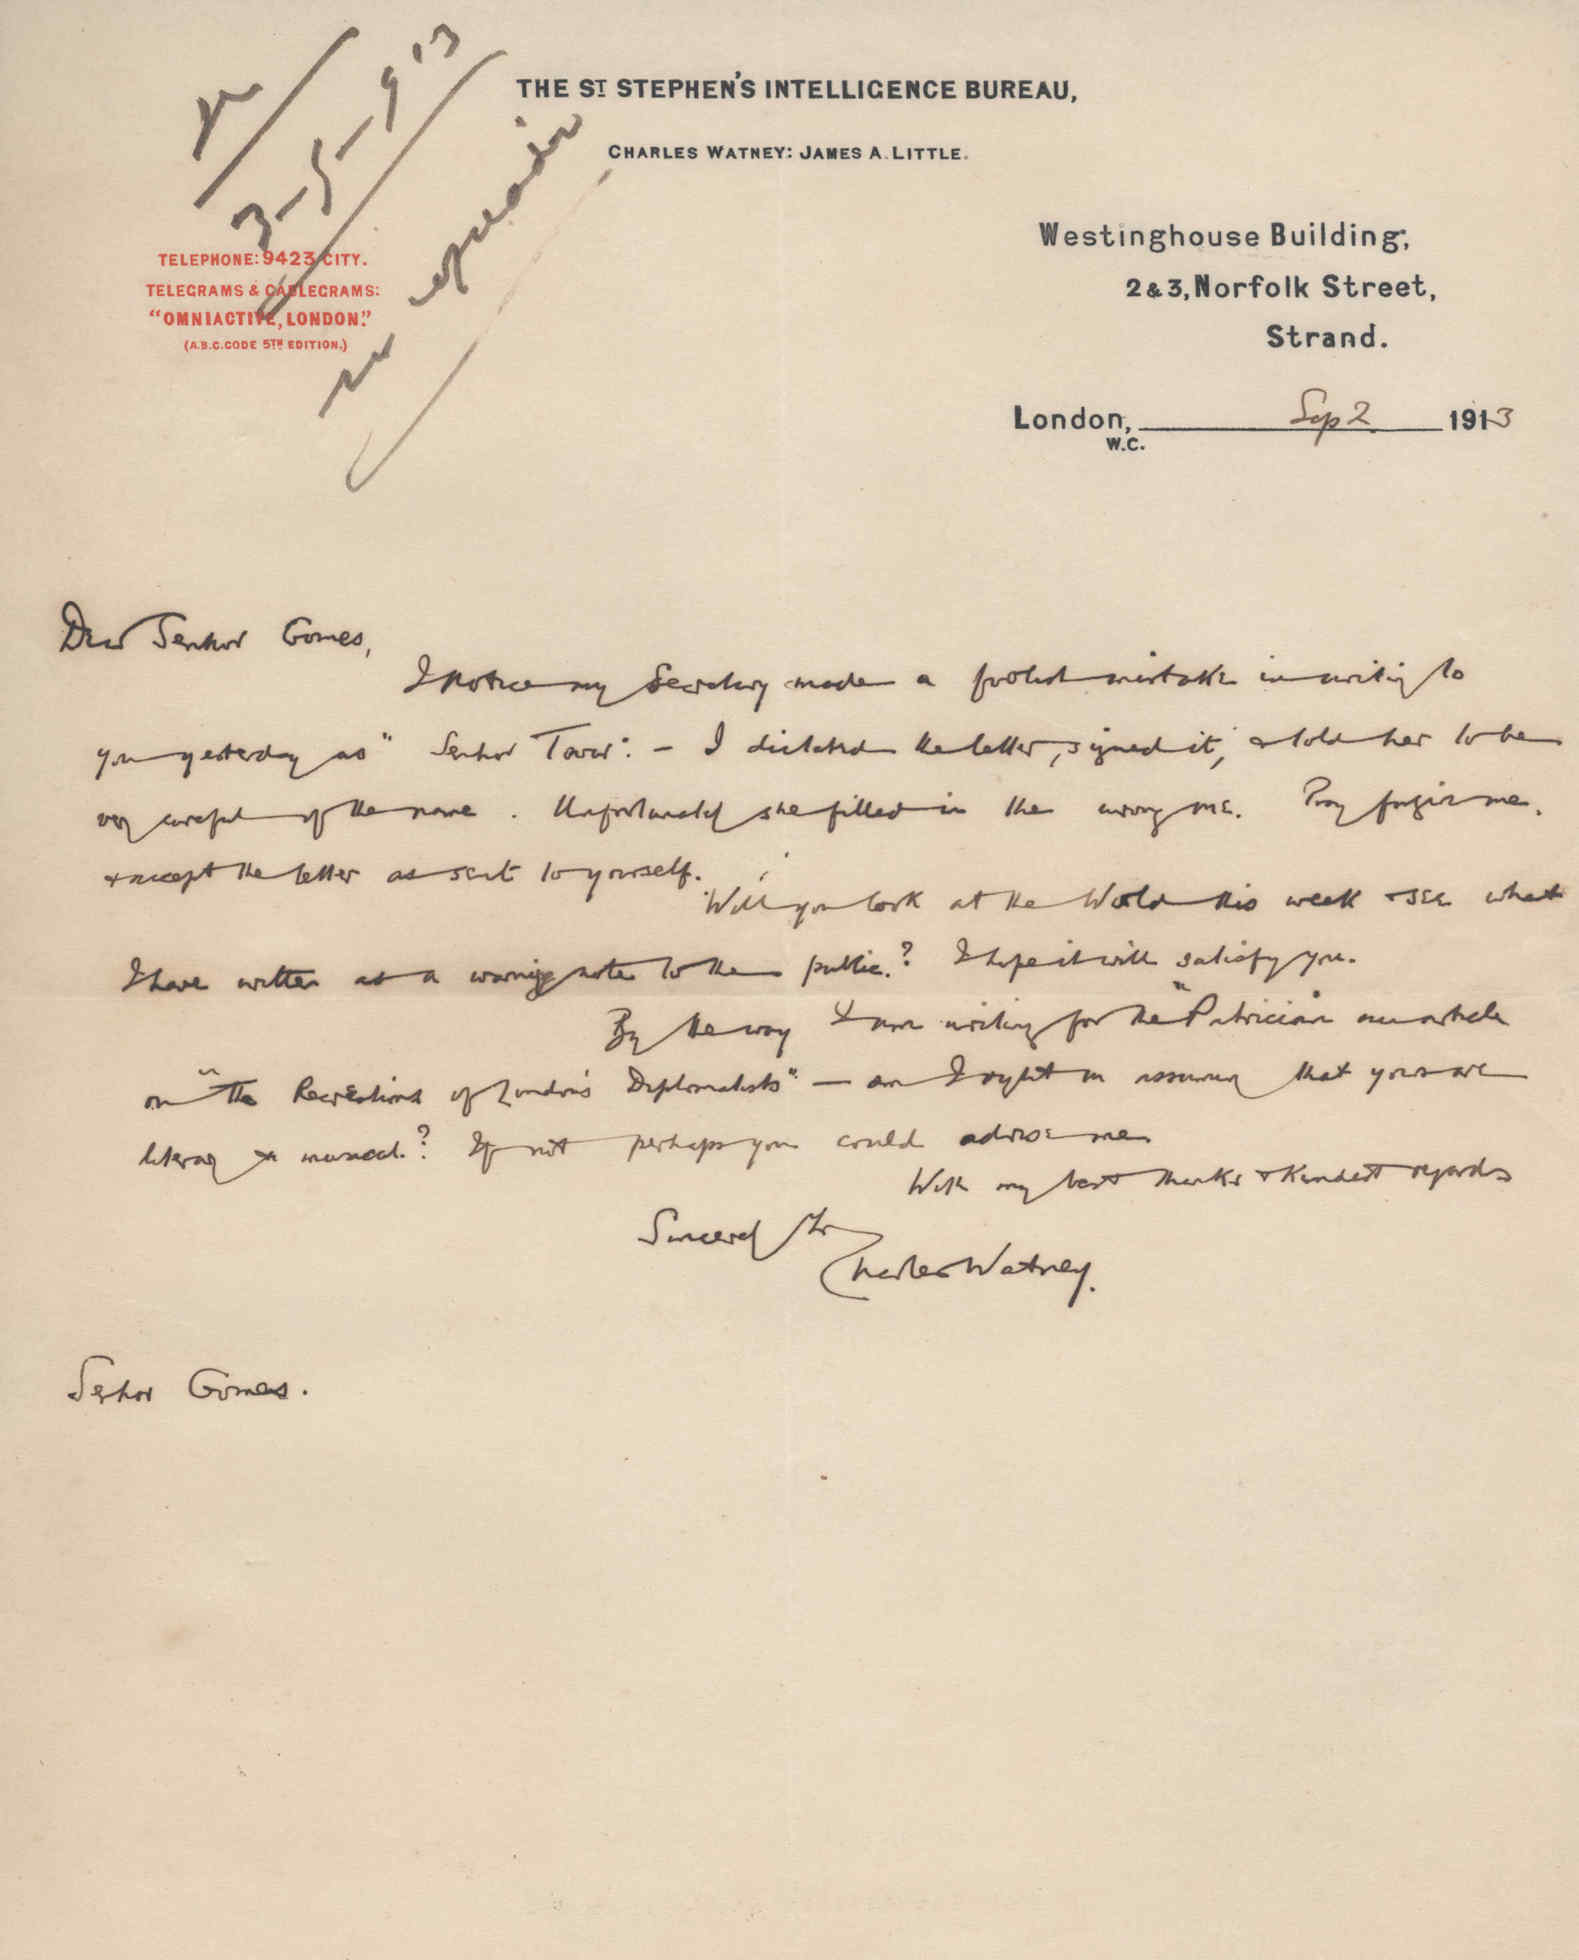 R
3-5-913
THE ST STEPHEN'S INTELLIGENCE BUREAU,
CHARLES WATNEY: JAMES A. LITTLE.
TELEPHONE: 9423 CITY.
TELEGRAMS & CABLEGRAMS:
"OMNIACTIVE, LONDON."
(A.B.C. CODE 5TH EDITION.)
Westinghouse Building,
2 & 3, Norfolk Street,
Strand.
London, Sep 2 1913
W.C.
Dear Senhor Gomes,
I notice my Secretary made a foolish mistake in writing to
you yesterday as "Senhor Tovar". - I dictated the letter, signed it, & told her to be
very careful of the name. Unfortunately she filled in the wrong one. Pray forgive me.
& accept the letter as sent to yourself.
Will you look at the World this week & see what
I have written as a warning note to the public.? I hope it will satisfy you.
By the way I am writing for the "Patrician an article
on "The Recreations of London's Diplomatists" — am I right in assuming that yours are
literary & musical.? If not perhaps you could advise me
With my best thanks & kindest regards
Sincerely Yrs
Charles Watney.
Senhor Gomes.